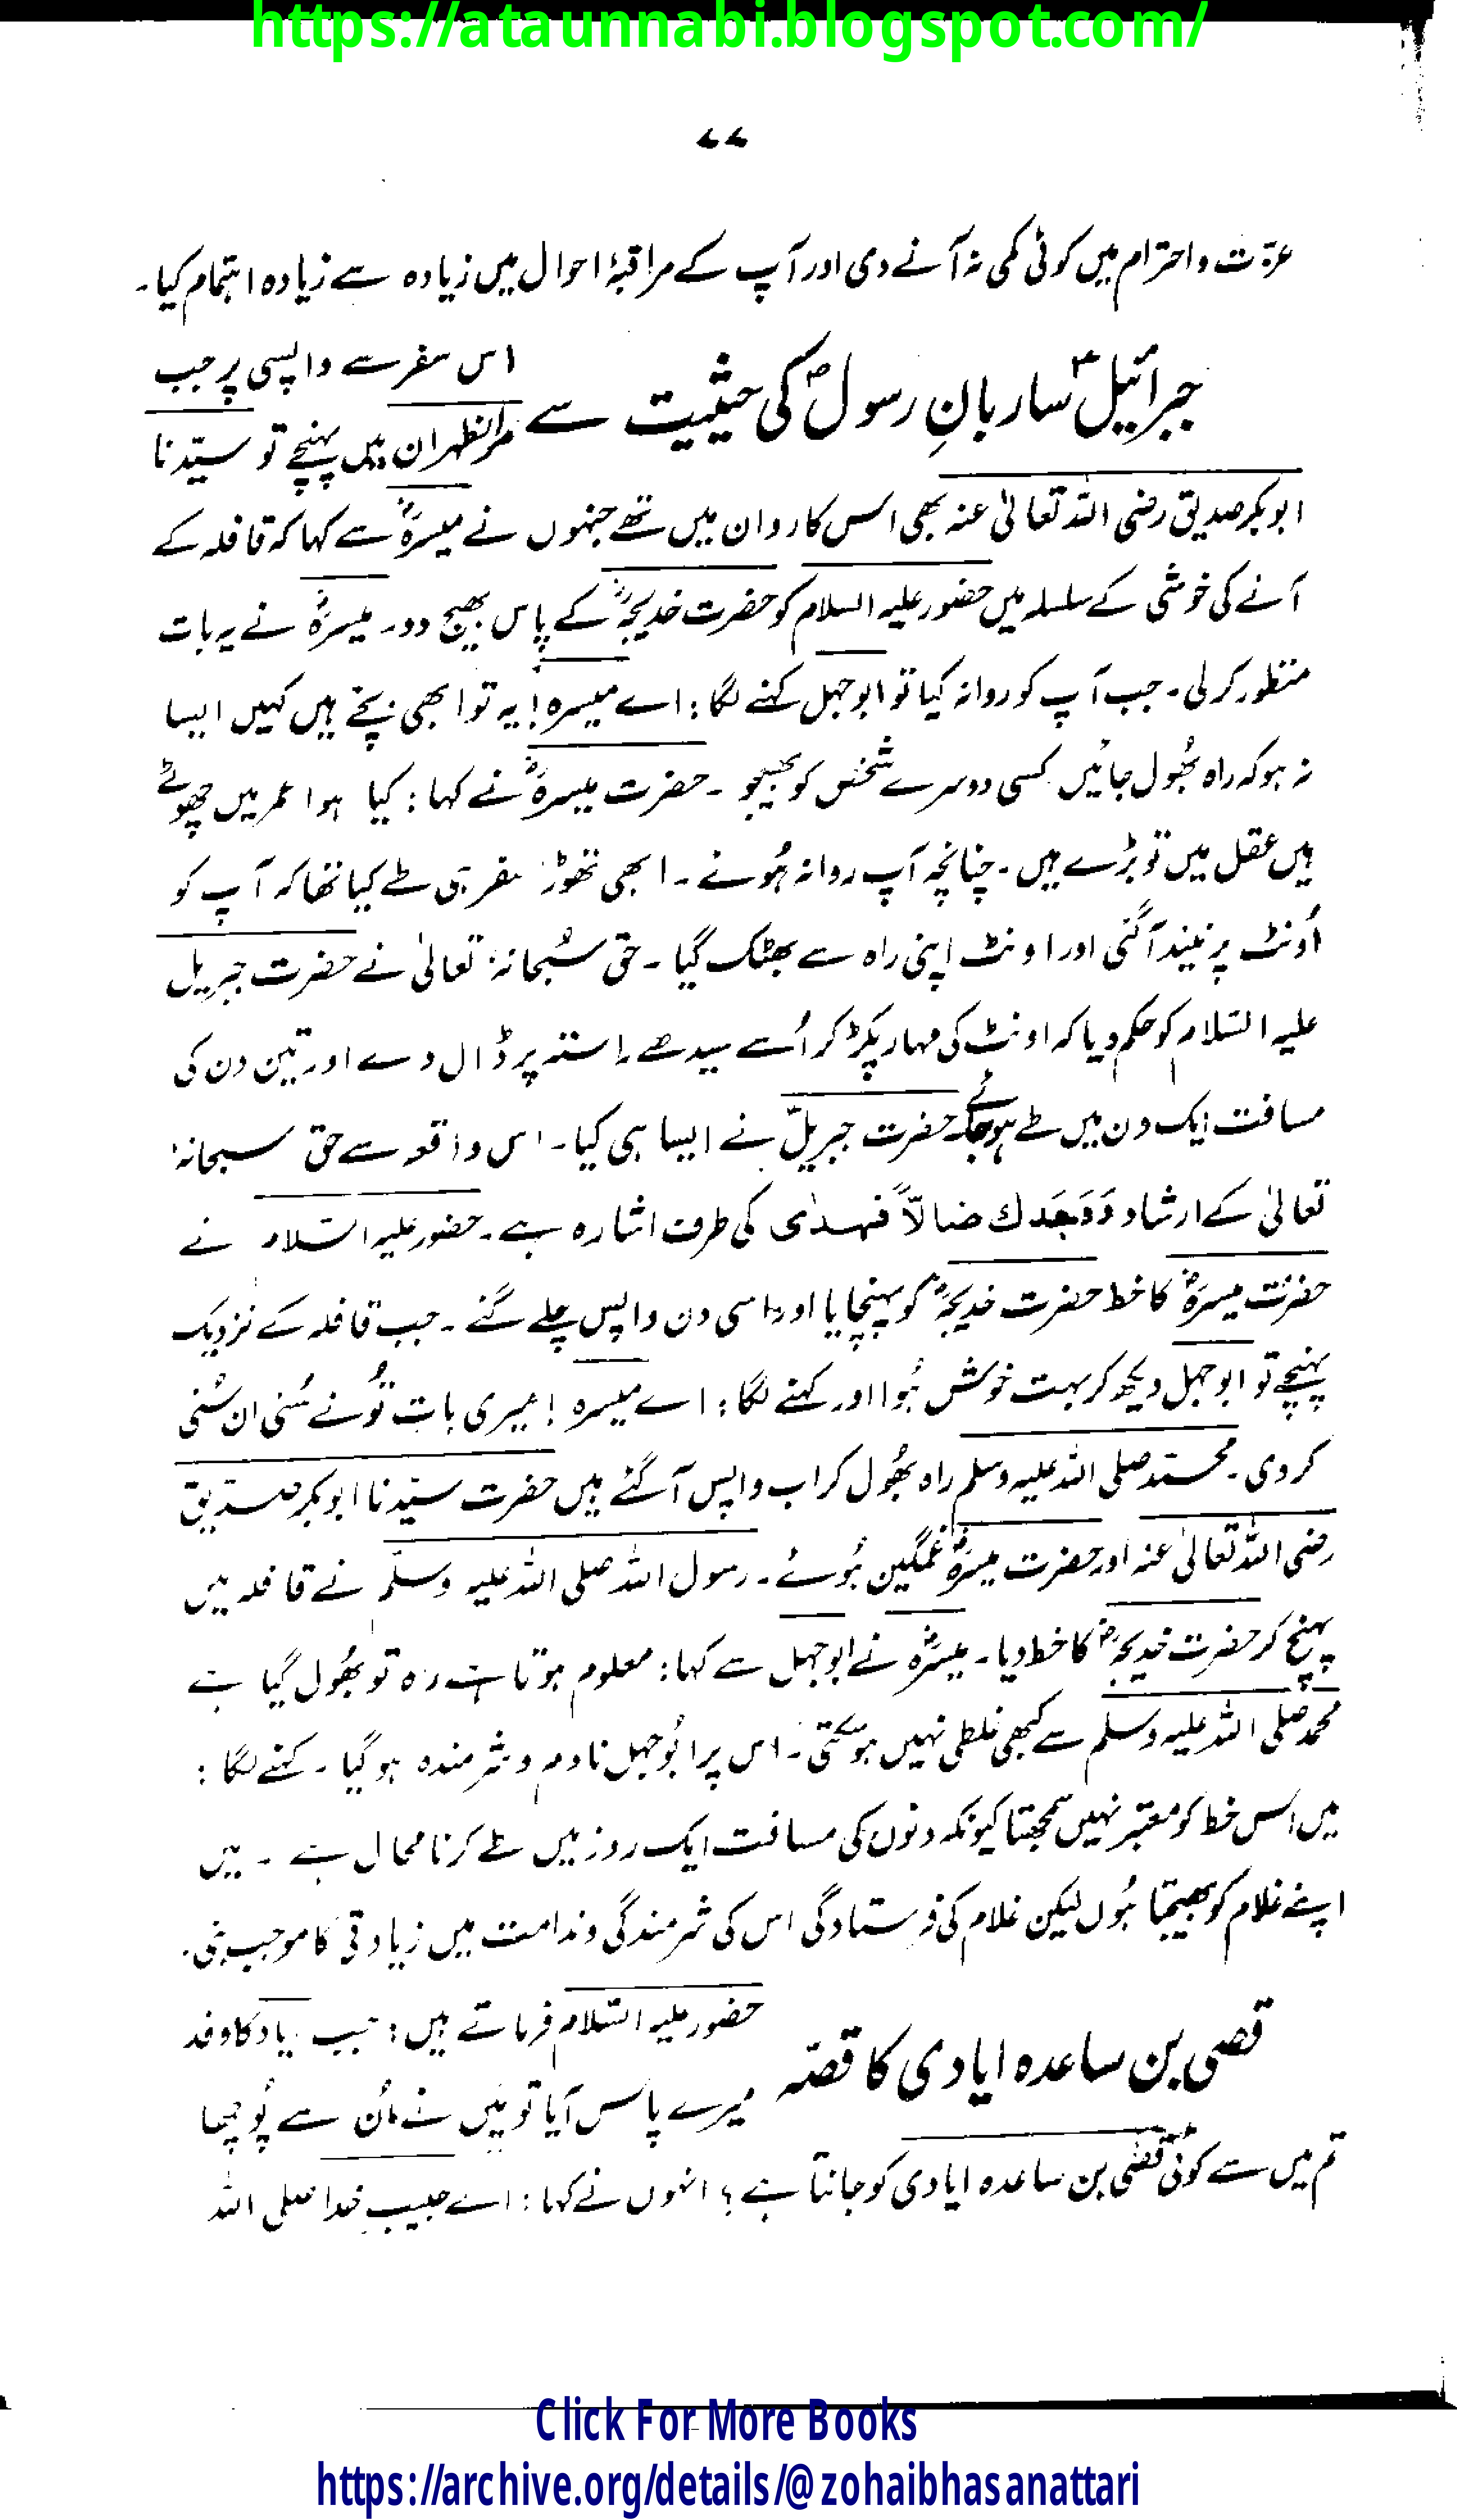 https://ataunnabi.blogspot.com/
۷۷
عزت و احترام میں کوئی کمی نہ آنے دی اور آپ کے مراقبۂ احوال میں زیادہ سے زیادہ اہتمام کیا۔
جبرائیلؑ ساربانِ رسولؐ کی حیثیت سے
اس سفر سے واپسی پر جب
مرالظہران میں پہنچے تو سیّدنا
ابوبکر صدیق رضی اللہ تعالیٰ عنہ بھی اس کاروان میں تھے جنہوں نے میسرہؓ سے کہا کہ قافلہ کے
آنے کی خوشی کے سلسلہ میں حضور علیہ السلام کو حضرت خدیجہؓ کے پاس بھیج دو۔ میسرہؓ نے یہ بات
منظور کر لی۔ جب آپ کو روانہ کیا تو ابوجہل کہنے لگا: اے میسرہ! یہ تو ابھی بچّے ہیں کہیں ایسا
نہ ہو کہ راہ بھُول جائیں کسی دوسرے شخص کو بھیجو۔ حضرت میسرہؓ نے کہا: کیا ہوا عمر میں چھوٹے
ہیں عقل میں تو بڑے ہیں۔ چنانچہ آپ روانہ ہُوئے۔ ابھی تھوڑا سفر ہی طے کیا تھا کہ آپ کو
اُونٹ پر نیند آگئی اور اونٹ اپنی راہ سے بھٹک گیا۔ حق سُبحانہٗ تعالیٰ نے حضرت جبریل
علیہ السّلام کو حکم دیا کہ اونٹ کی مہار پکڑ کر اُسے سیدھے راستہ پر ڈال دے اور تین دن کی
مسافت ایک دن میں طے ہو جائے۔ حضرت جبریلؑ نے ایسا ہی کیا۔ اس واقعہ سے حق سبحانہٗ
تعالیٰ کے ارشاد وَوَجَدَك ضالاًّ فہدٰی کی طرف اشارہ ہے۔ حضور علیہ السّلام نے
حضرت میسرہؓ کا خط حضرت خدیجہؓ کو پہنچایا اور اسی دن واپس چلے گئے۔ جب قافلہ کے نزدیک
پہنچے تو ابوجہل دیکھ کر بہت خوش ہُوا اور کہنے لگا: اے میسرہ! میری بات تُو نے سُنی ان سُنی
کر دی۔ محمّد صلی اللہ علیہ وسلم راہ بھُول کر اب واپس آگئے ہیں حضرت سیّدنا ابوبکر صدّیق
رضی اللہ تعالیٰ عنہ اور حضرت میسرہؓ غمگین ہُوئے۔ رسول اللہ صلی اللہ علیہ وسلّم نے قافلہ میں
پہنچ کر حضرت خدیجہؓ کا خط دیا۔ میسرہؓ نے ابوجہل سے کہا: معلوم ہوتا ہے راہ تو بھُول گیا ہے
محمد صلی اللہ علیہ وسلم سے کبھی غلطی نہیں ہو سکتی۔ اس پر ابُوجہل نادم و شرمندہ ہو گیا۔ کہنے لگا:
میں اس خط کو معتبر نہیں سمجھتا کیونکہ دنوں کی مسافت ایک روز میں طے کرنا محال ہے۔ میں
اپنے غلام کو بھیجتا ہُوں لیکن غلام کی فرستادگی اس کی شرمندگی و ندامت میں زیادتی کا موجب بنی۔
قصی بن ساعدہ ایادی کا قصّہ
حضور علیہ السّلام فرماتے ہیں: جب ایاد کا وفد
میرے پاس آیا تو میں نے اُن سے پُوچھا
تم میں سے کوئی قصٰی بن ساعدہ ایادی کو جانتا ہے؟ انہوں نے کہا: اے حبیبِ خدا صلی اللہ
Click For More Books
https://archive.org/details/@zohaibhasanattari